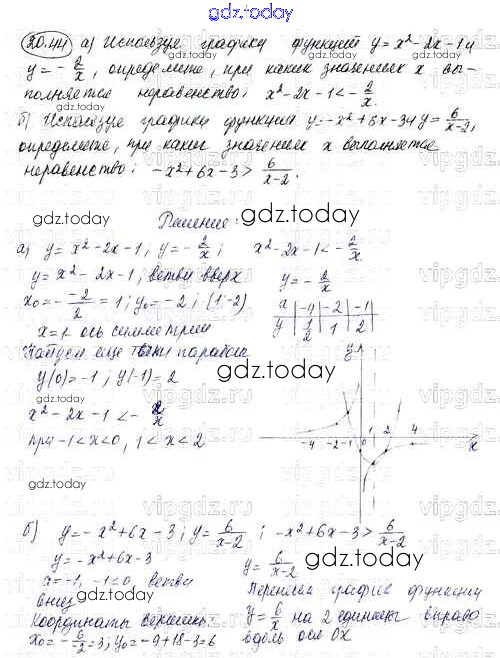 gdz.today
20.44 а) Используя графики функций y = x² - 2x - 1 и
y = - 2/x, определите, при каких значениях x вы-
полняется неравенство: x² - 2x - 1 < - 2/x.
б) Используя графики функций y = -x² + 6x - 3 и y = 6/(x-2),
определите, при каких значениях x выполняется
неравенство: -x² + 6x - 3 > 6/(x-2).
Решение:
а) y = x² - 2x - 1; y = - 2/x; x² - 2x - 1 < - 2/x
y = x² - 2x - 1, ветви вверх y = - 2/x
x₀ = - -2/2 = 1; y₀ = -2; (1; -2) x -4 -2 -1
x = 1 ось симметрии y 1/2 1 2
Найдем еще точки параболы
y(0) = -1; y(-1) = 2
x² - 2x - 1 < - 2/x
при -1 < x < 0, 1 < x < 2
y
-4 -2 -1 0 1 2 4 x
б) y = -x² + 6x - 3; y = 6/(x-2); -x² + 6x - 3 > 6/(x-2)
y = -x² + 6x - 3 y = 6/(x-2)
x = -1, -1 < 0, ветви Перенесем график функции
вниз y = 6/x на 2 единицы вправо
Координаты вершины: вдоль оси Ox
x₀ = - 6/-2 = 3; y₀ = -9 + 18 - 3 = 6
gdz.today
gdz.today
gdz.today
gdz.today
gdz.today
gdz.today
gdz.today
gdz.today
vipgdz.ru